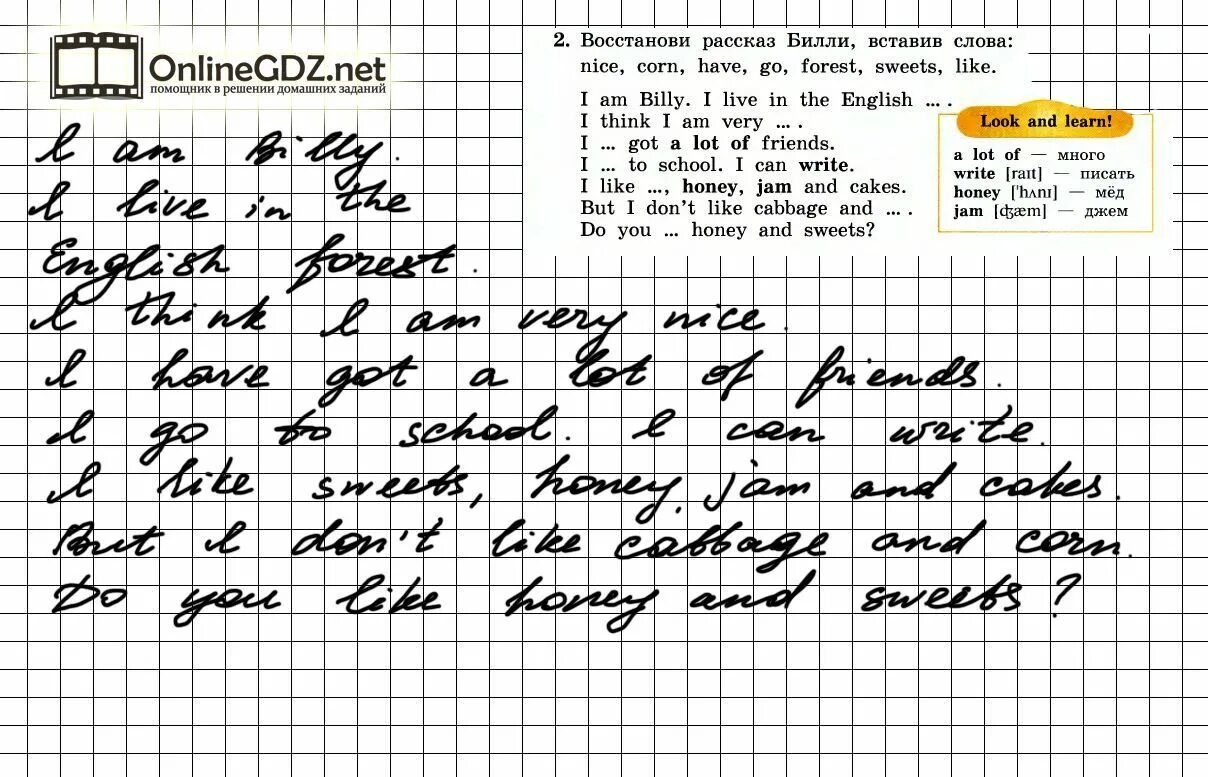 OnlineGDZ.net
помощник в решении домашних заданий
2. Восстанови рассказ Билли, вставив слова:
nice, corn, have, go, forest, sweets, like.
I am Billy. I live in the English ... .
I think I am very ... .
I ... got a lot of friends.
I ... to school. I can write.
I like ..., honey, jam and cakes.
But I don't like cabbage and ... .
Do you ... honey and sweets?
Look and learn!
a lot of — много
write [raɪt] — писать
honey ['hʌnɪ] — мёд
jam [ʤæm] — джем
I am Billy.
I live in the
English forest.
I think I am very nice.
I have got a lot of friends.
I go to school. I can write.
I like sweets, honey, jam and cakes.
But I don't like cabbage and corn.
Do you like honey and sweets?